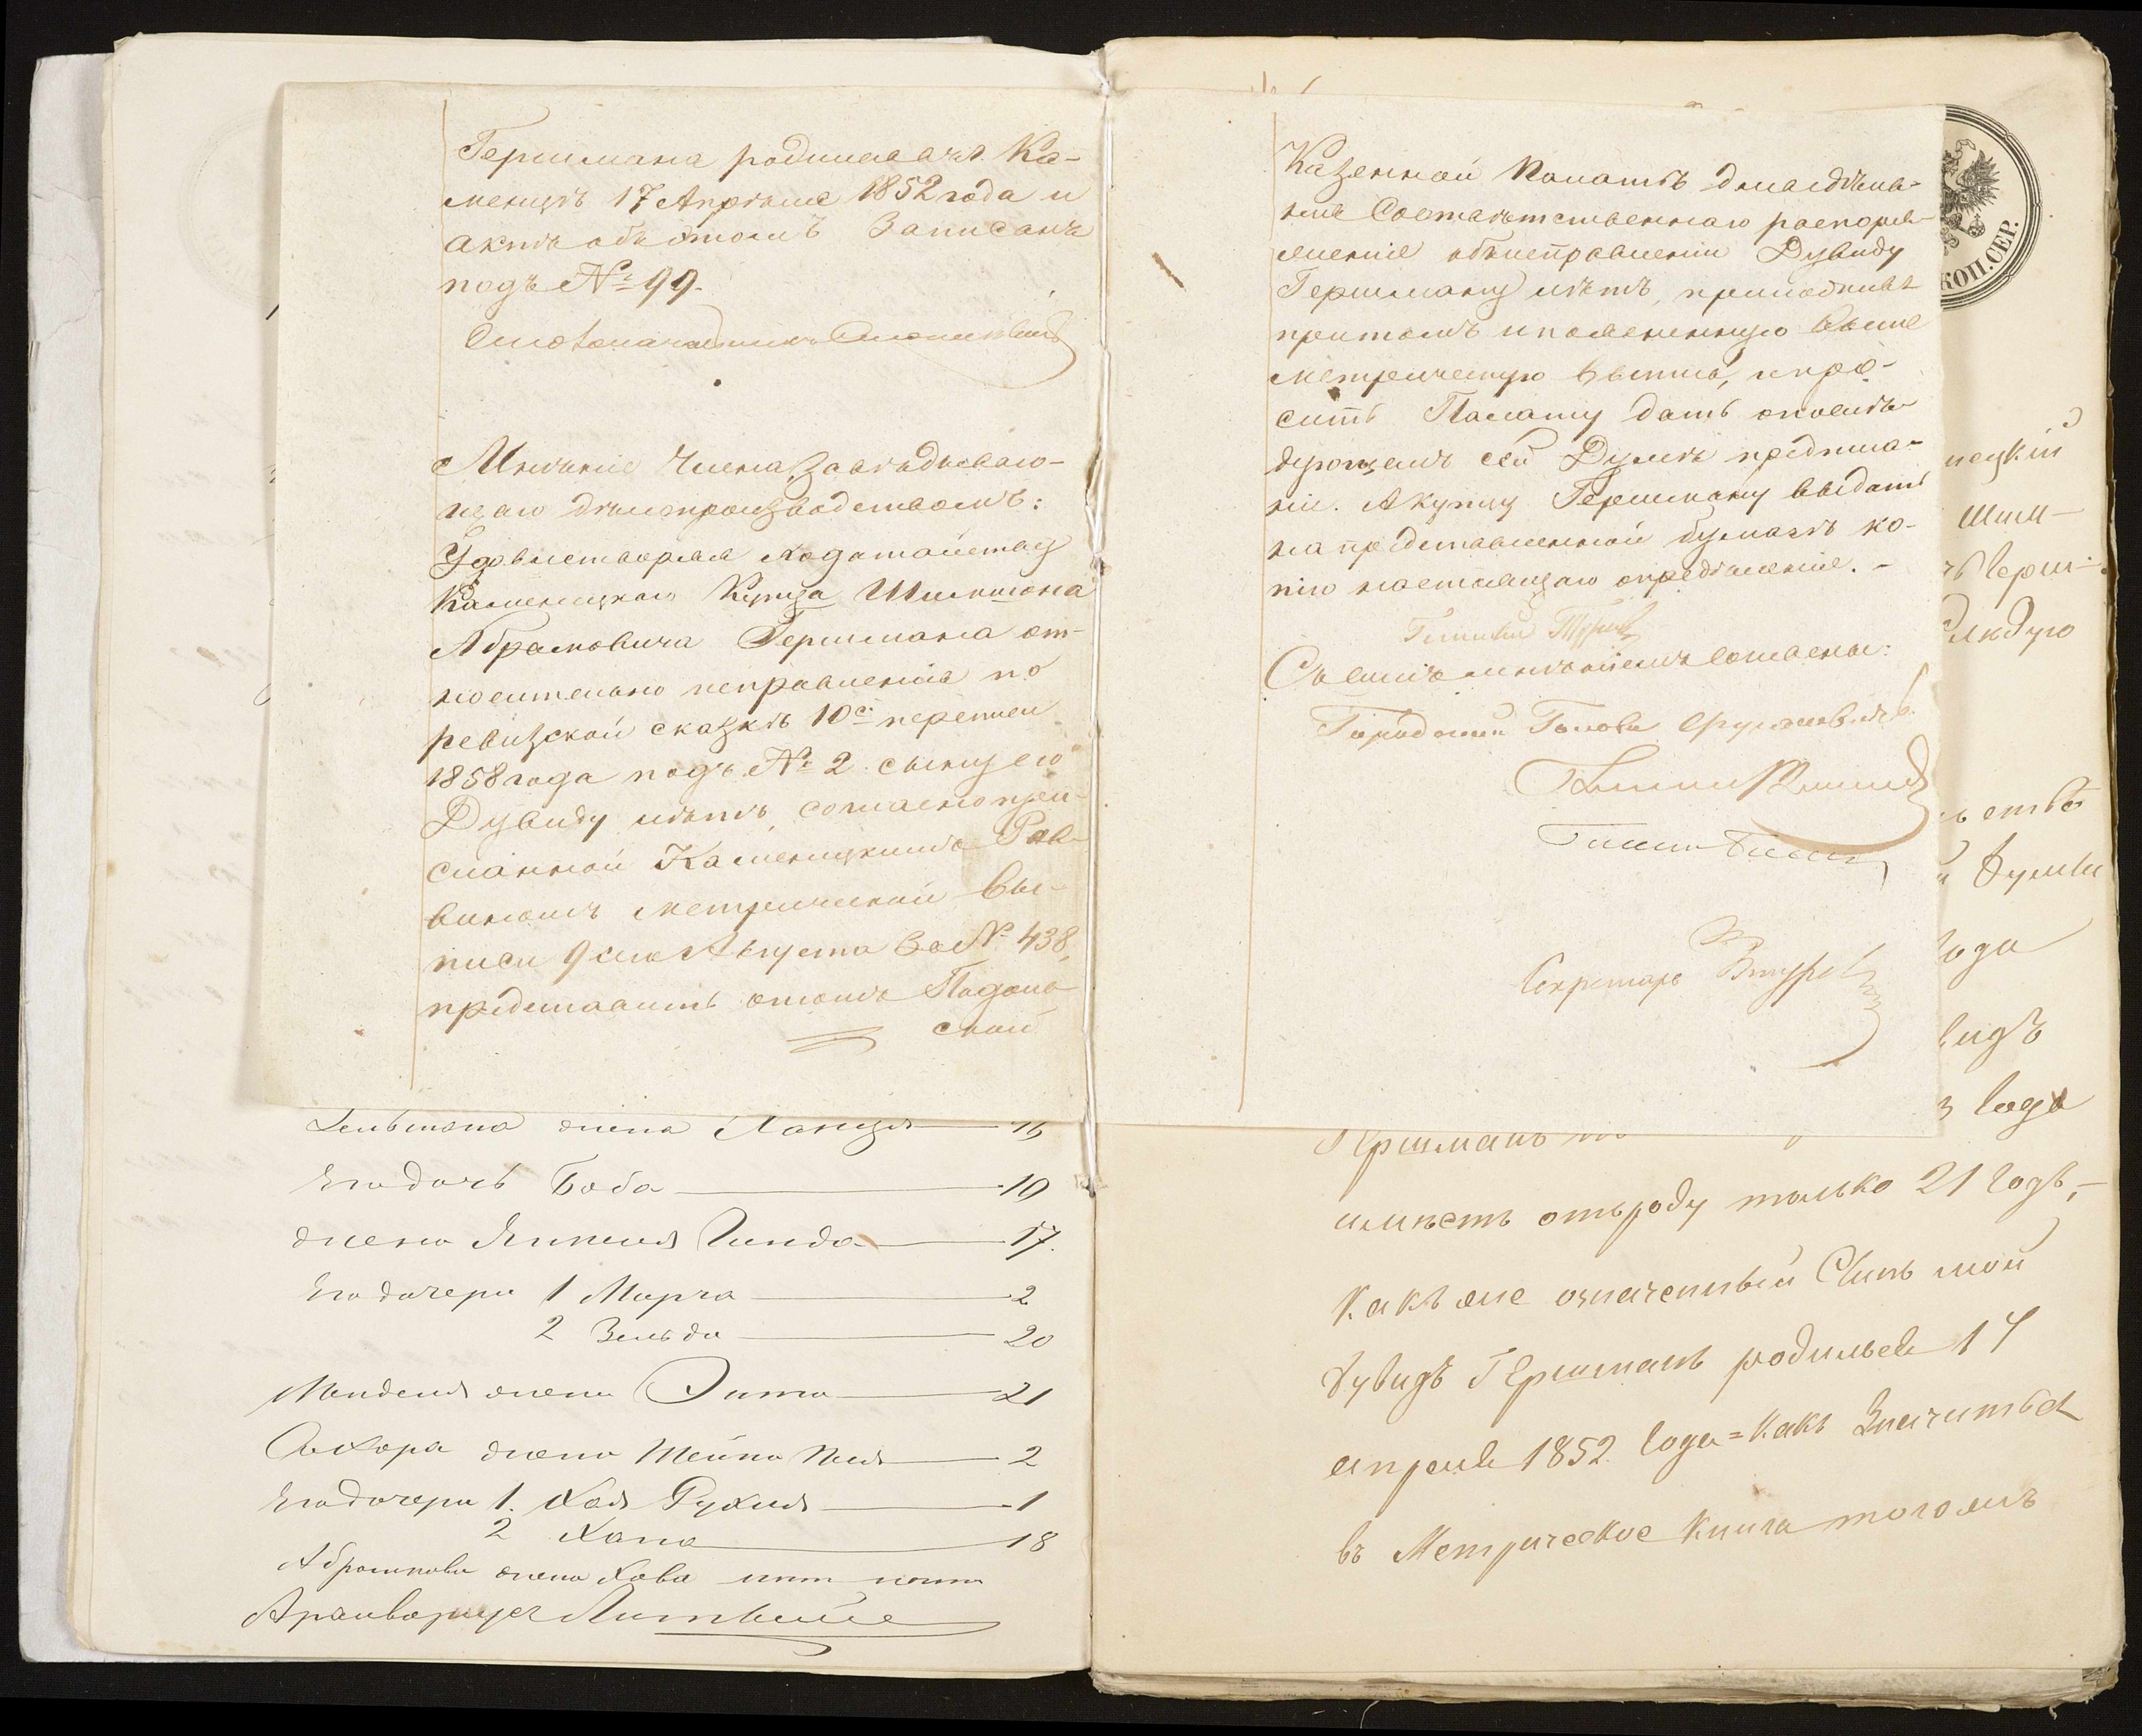 Гершмана родился въ г. Ка-
менцѣ 17 Апрѣля 1852 года и
актъ объ этомъ записанъ
подъ № 99.
Столоначальникъ
Мнѣніе Члена завѣдываю-
щаго дѣлопроизводствомъ:
Удовлетворяя ходатайству
Каменецкаго Купца Шимшона
Абрамовича Гершмана от-
носительно исправленія по
ревизской сказкѣ 10й переписи
1858 года подъ № 2 сыну его
Дувиду лѣтъ, согласно при-
сланной Каменецкимъ Рав-
виномъ метрической вы-
писи 9 сего Августа за № 438,
представить о томъ Подоль-
ской
Казенной Палатѣ для сдѣла-
нія Соотвѣтственнаго распоря-
женія объ исправленіи Дувиду
Гершману лѣтъ, приложивъ
притомъ и поясненную выше
метрическую выпись, и про-
сить Палату дать о послѣ-
дующемъ сей Думѣ предписа-
ніе. А купцу Гершману выдать
на представленной бумагѣ ко-
пію настоящаго опредѣленія. -
Съ симъ мнѣніемъ согласны:
Городской Голова
Секретарь
КОП. СЕР.
нецкій
Шим-
Герш-
Слѣдую
ьство
Думы
года
видъ
3 года
жена 16
Его дочь Боба 19
жена Янкеля Гинда 17.
Его дочери 1 Марга 2
2 Зельда 20
Менделя жена Энта 21
Сахора жена Шейна 2
Его дочери 1. Хая Рухля 1
2 Хана 18
Абрамкова жена Хава
Архиваріусъ
Гершманъ
имѣетъ отъ роду только 21 годъ,-
Какъ же означенный Сынъ мой
Дувидъ Гершманъ родился 17
апреля 1852 года = какъ Значиться
въ Метрическое Книга того жъ